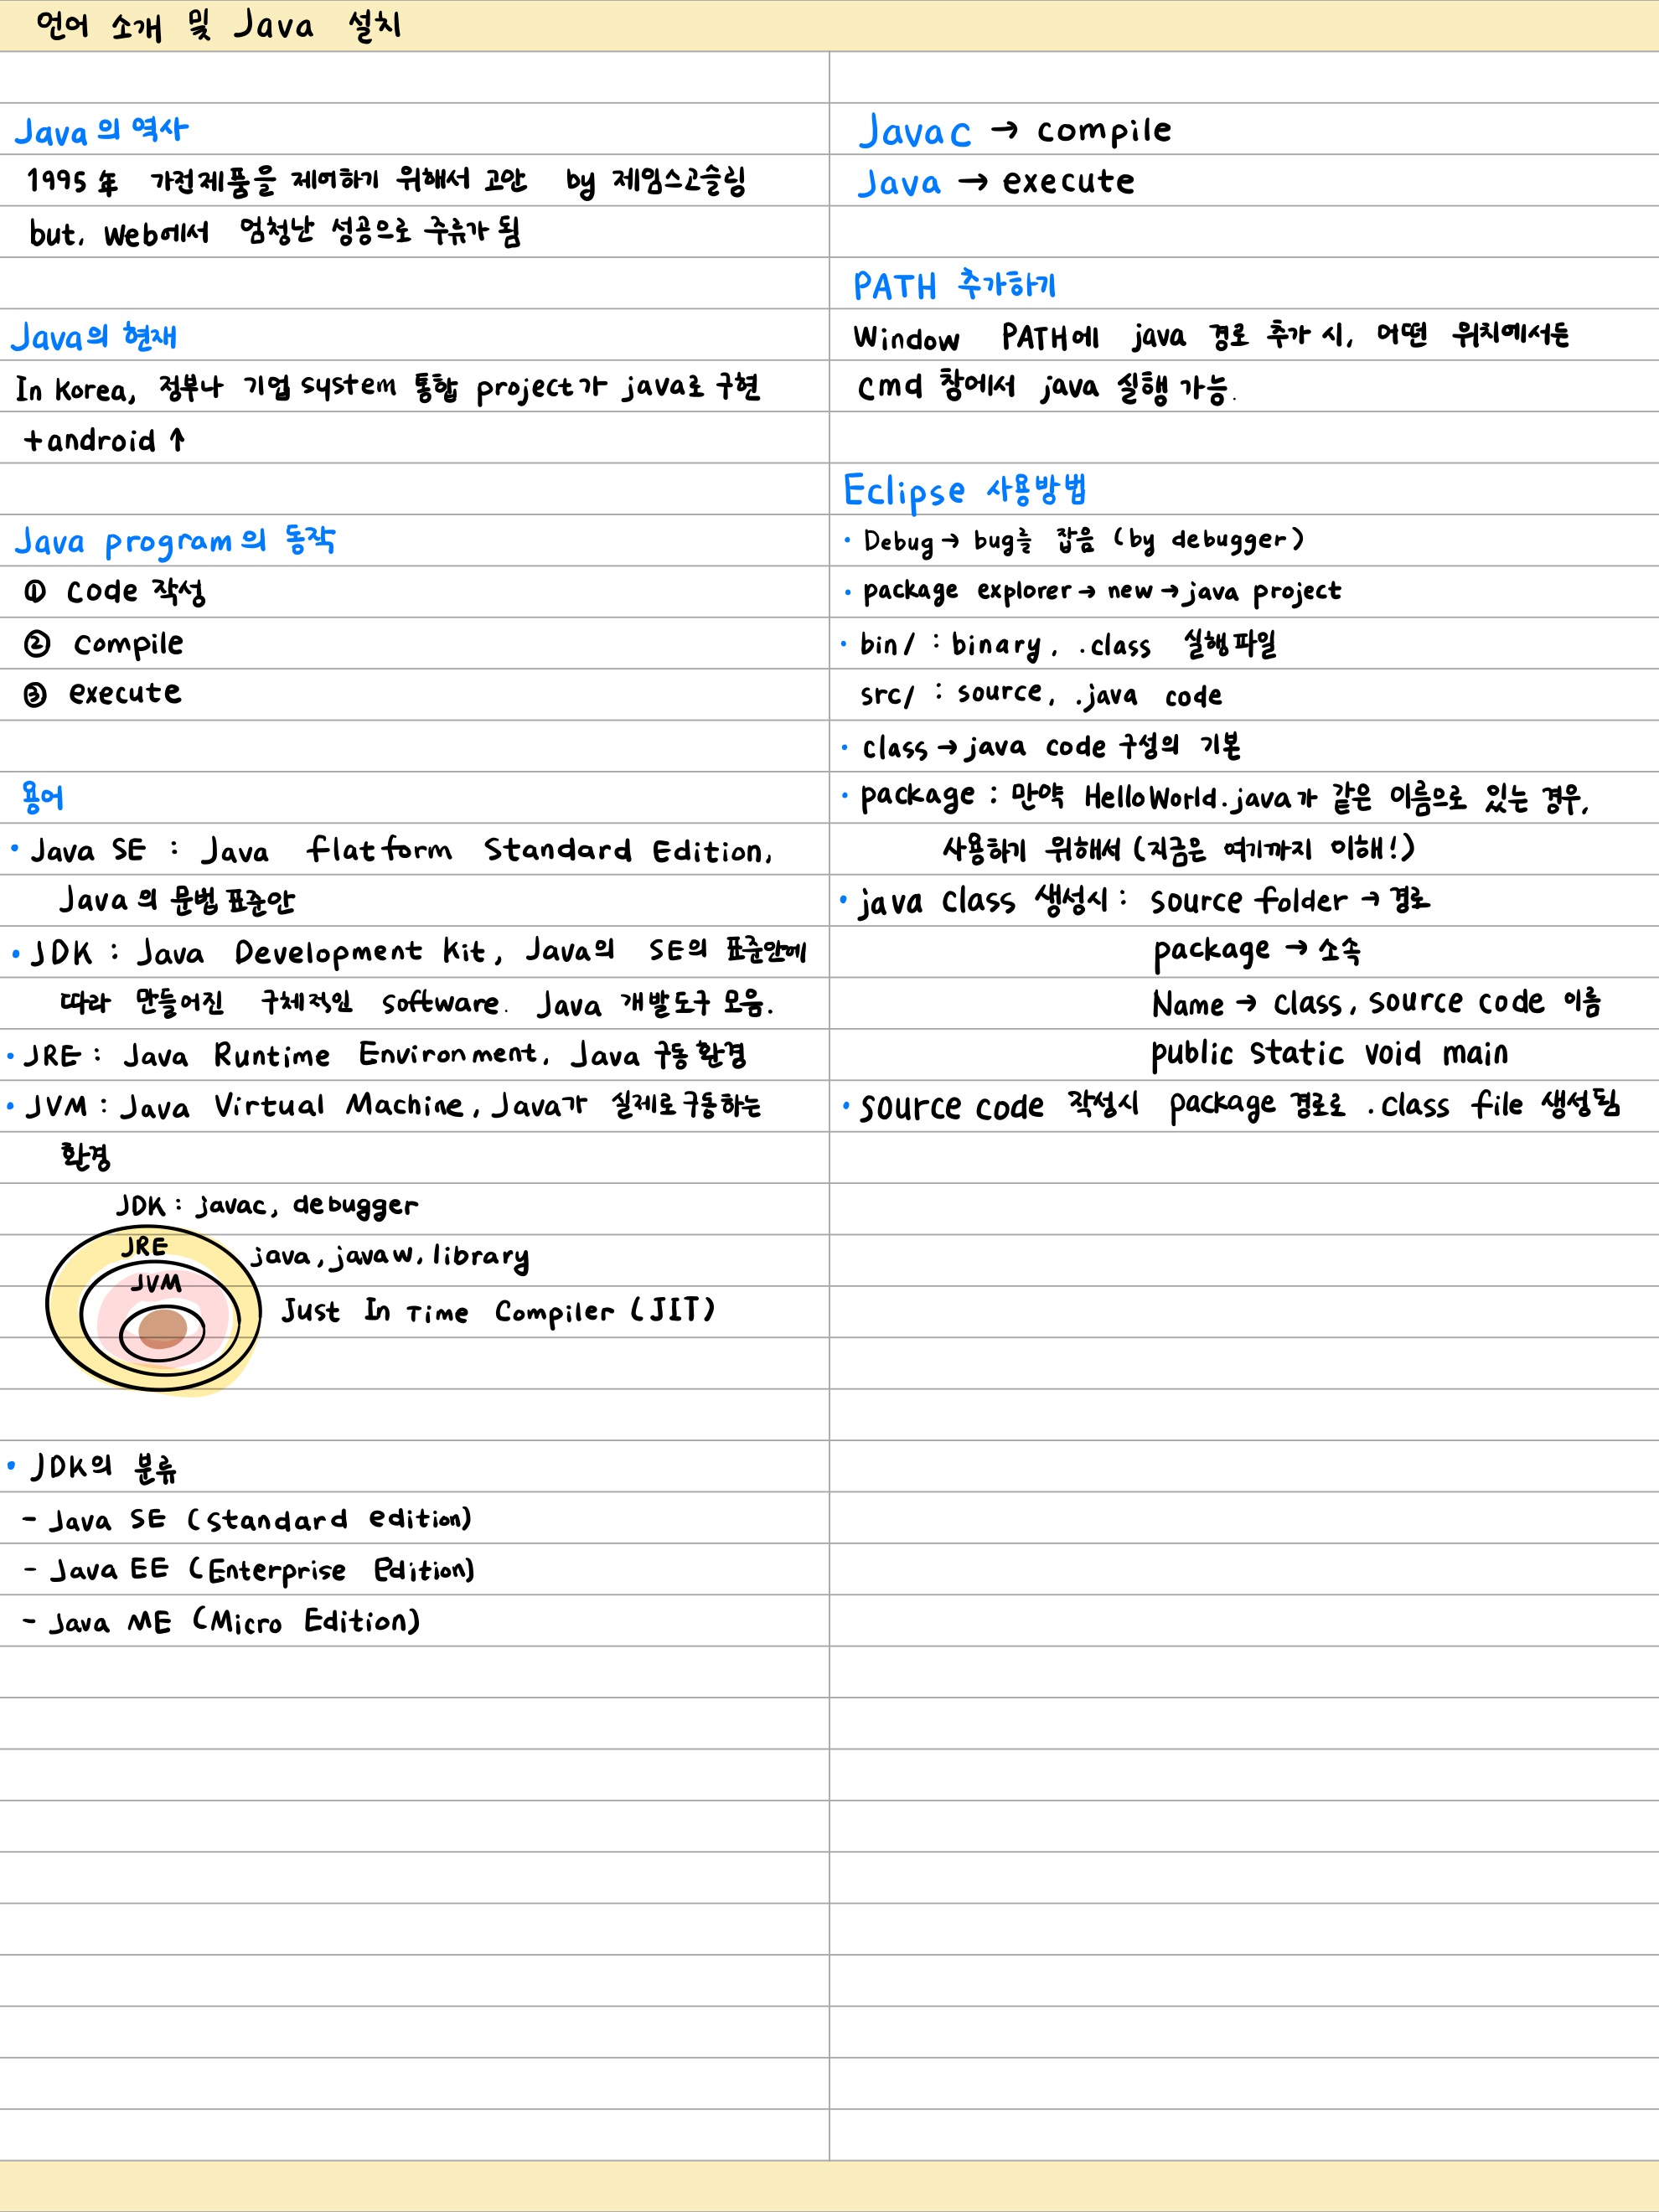 언어 소개 및 Java 설치
Java의 역사
1995年 가전제품을 제어하기 위해서 고안 by 제임스고슬링
but, Web에서 엄청난 성공으로 주류가 됨
Java의 현재
In Korea, 정부나 기업 system 통합 project가 java로 구현
+android ↑
Java program의 동작
① code 작성
② compile
③ execute
용어
• Java SE : Java flatform Standard Edition,
Java의 문법 표준안
• JDK : Java Development kit, Java의 SE의 표준안에
따라 만들어진 구체적인 software. Java 개발도구 모음.
• JRE : Java Runtime Environment, Java 구동 환경
• JVM : Java Virtual Machine, Java가 실제로 구동하는
환경
JDK : javac, debugger
JRE java, javaw, library
JVM
Just In Time Compiler (JIT)
• JDK의 분류
- Java SE (standard edition)
- Java EE (Enterprise Edition)
- Java ME (Micro Edition)
Javac → compile
Java → execute
PATH 추가하기
Window PATH에 java 경로 추가 시, 어떤 위치에서든
cmd 창에서 java 실행 가능.
Eclipse 사용방법
• Debug → bug를 잡음 (by debugger)
• package explorer → new → java project
• bin/ : binary, .class 실행파일
src/ : source, .java code
• class → java code 구성의 기본
• package : 만약 HelloWorld.java가 같은 이름으로 있는 경우,
사용하기 위해서 (지금은 여기까지 이해!)
• java class 생성시 : source folder → 경로
package → 소속
Name → class, source code 이름
public static void main
• source code 작성시 package 경로로 .class file 생성됨